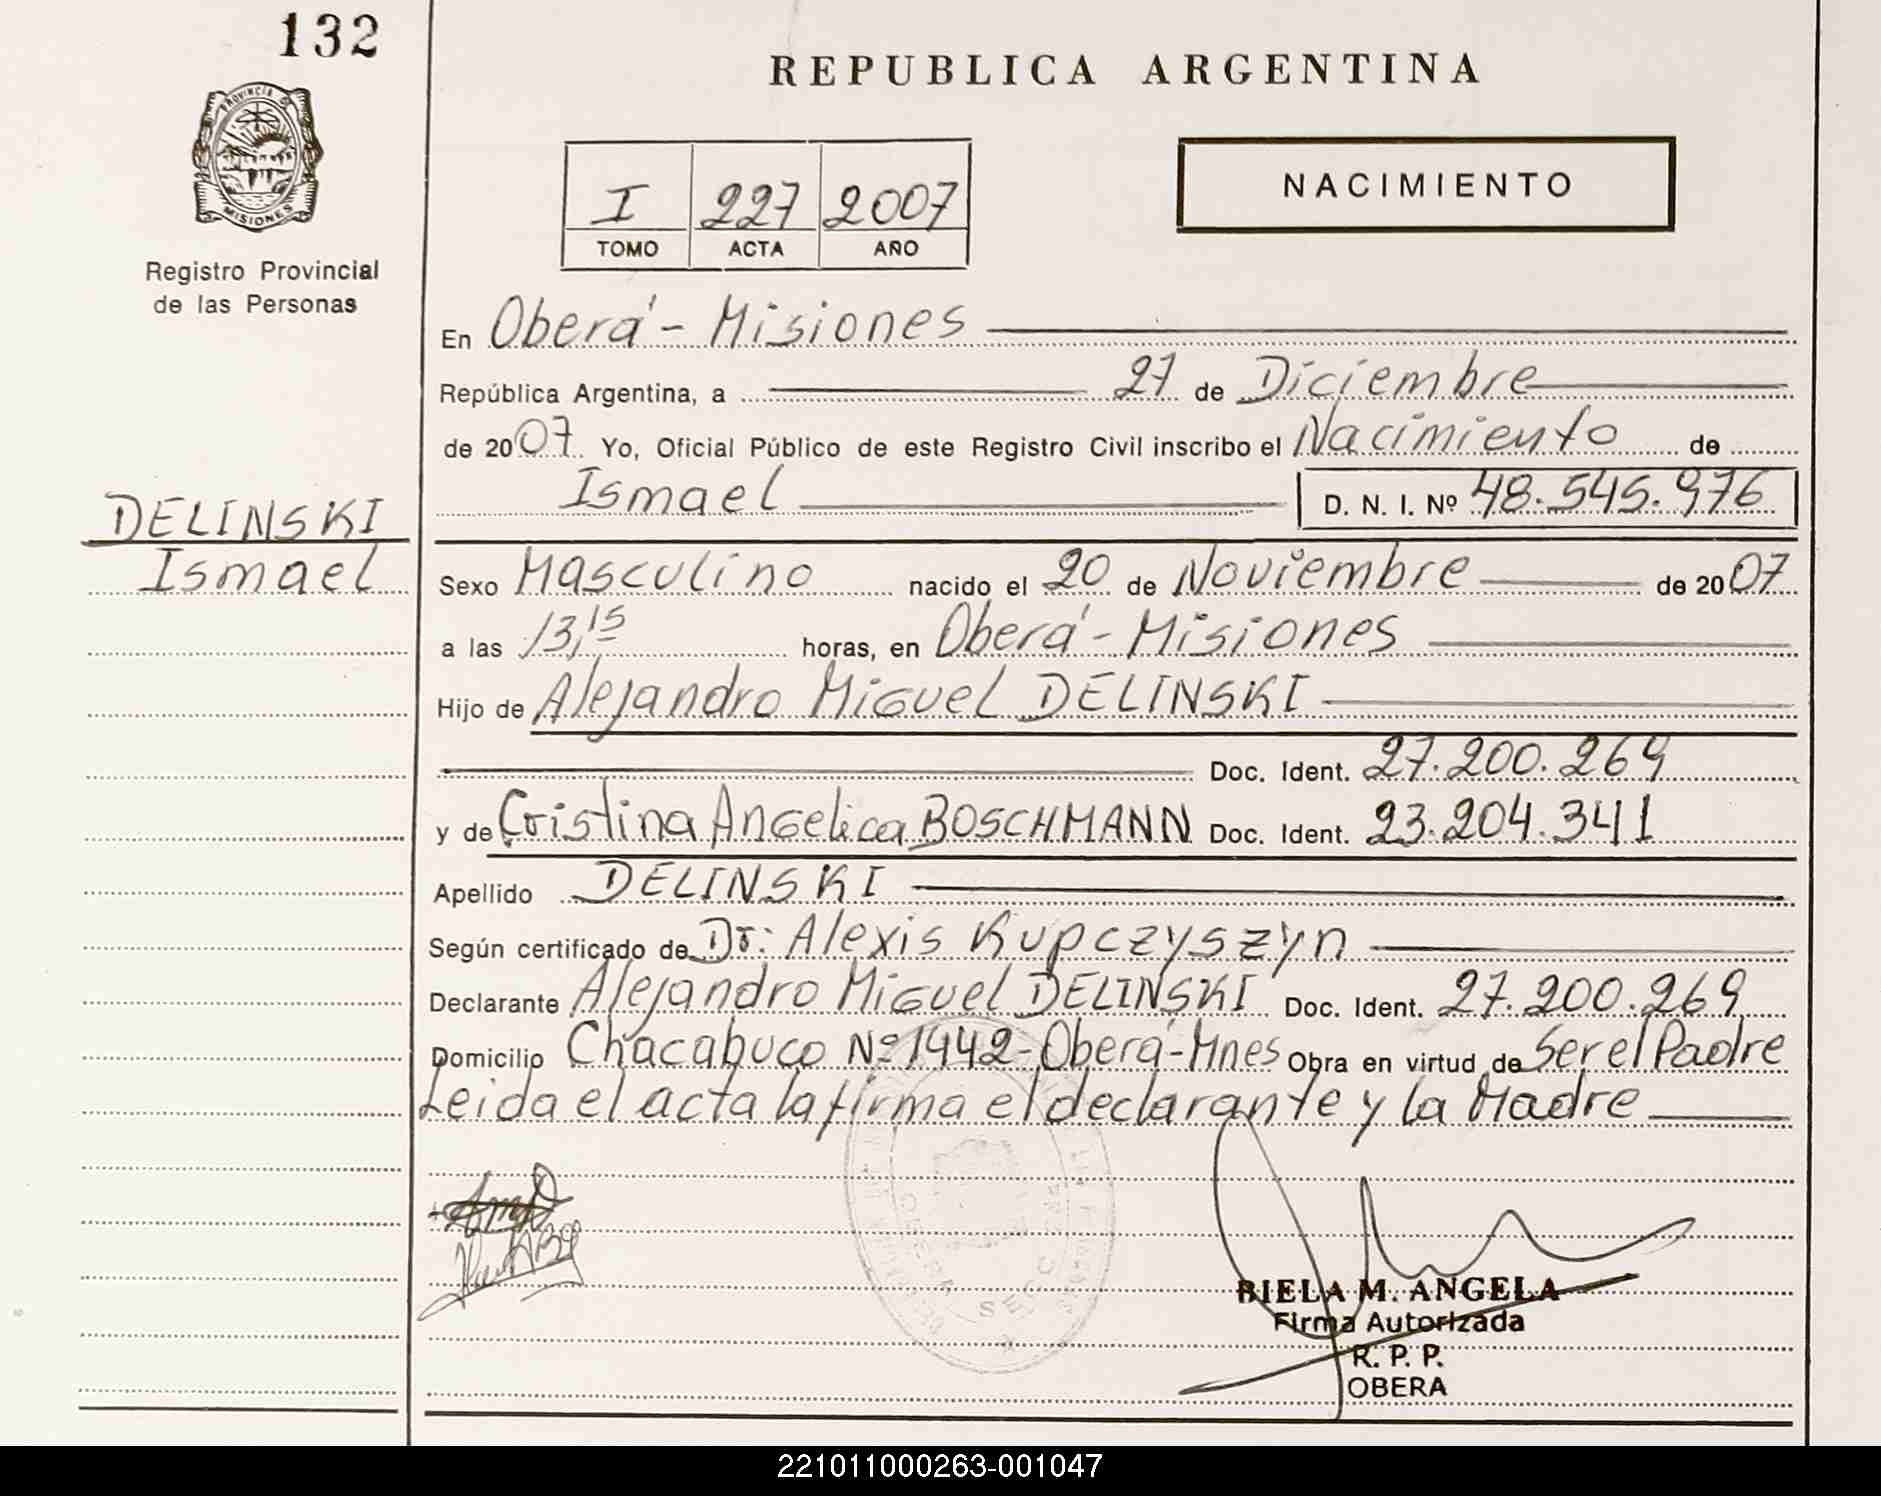 132
REPUBLICA ARGENTINA
PROVINCIA DE
MISIONES
Registro Provincial
de las Personas
I 227 2007
TOMO ACTA AÑO
NACIMIENTO
En Oberá - Misiones
República Argentina, a 27 de Diciembre
de 2007. Yo, Oficial Público de este Registro Civil inscribo el Nacimiento de
Ismael D. N. I. Nº 48.545.976
DELINSKI
Ismael
Sexo Masculino nacido el 20 de Noviembre de 2007
a las 13,15 horas, en Oberá - Misiones
Hijo de Alejandro Miguel DELINSKI
Doc. Ident. 27.200.269
y de Cristina Angelica BOSCHMANN Doc. Ident. 23.204.341
Apellido DELINSKI
Según certificado de Dr: Alexis Kupczyszyn
Declarante Alejandro Miguel DELINSKI Doc. Ident. 27.200.269
Domicilio Chacabuco Nº 1442 - Oberá - Mnes Obra en virtud de Ser el Padre
Leida el acta la firma el declarante y la Madre
BIELA M. ANGELA
Firma Autorizada
R. P. P.
OBERA
221011000263-001047